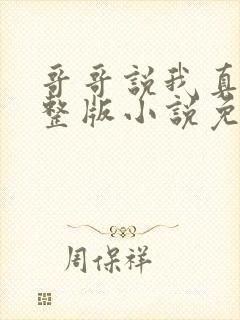 哥哥說我真
整版小說免
周保祥